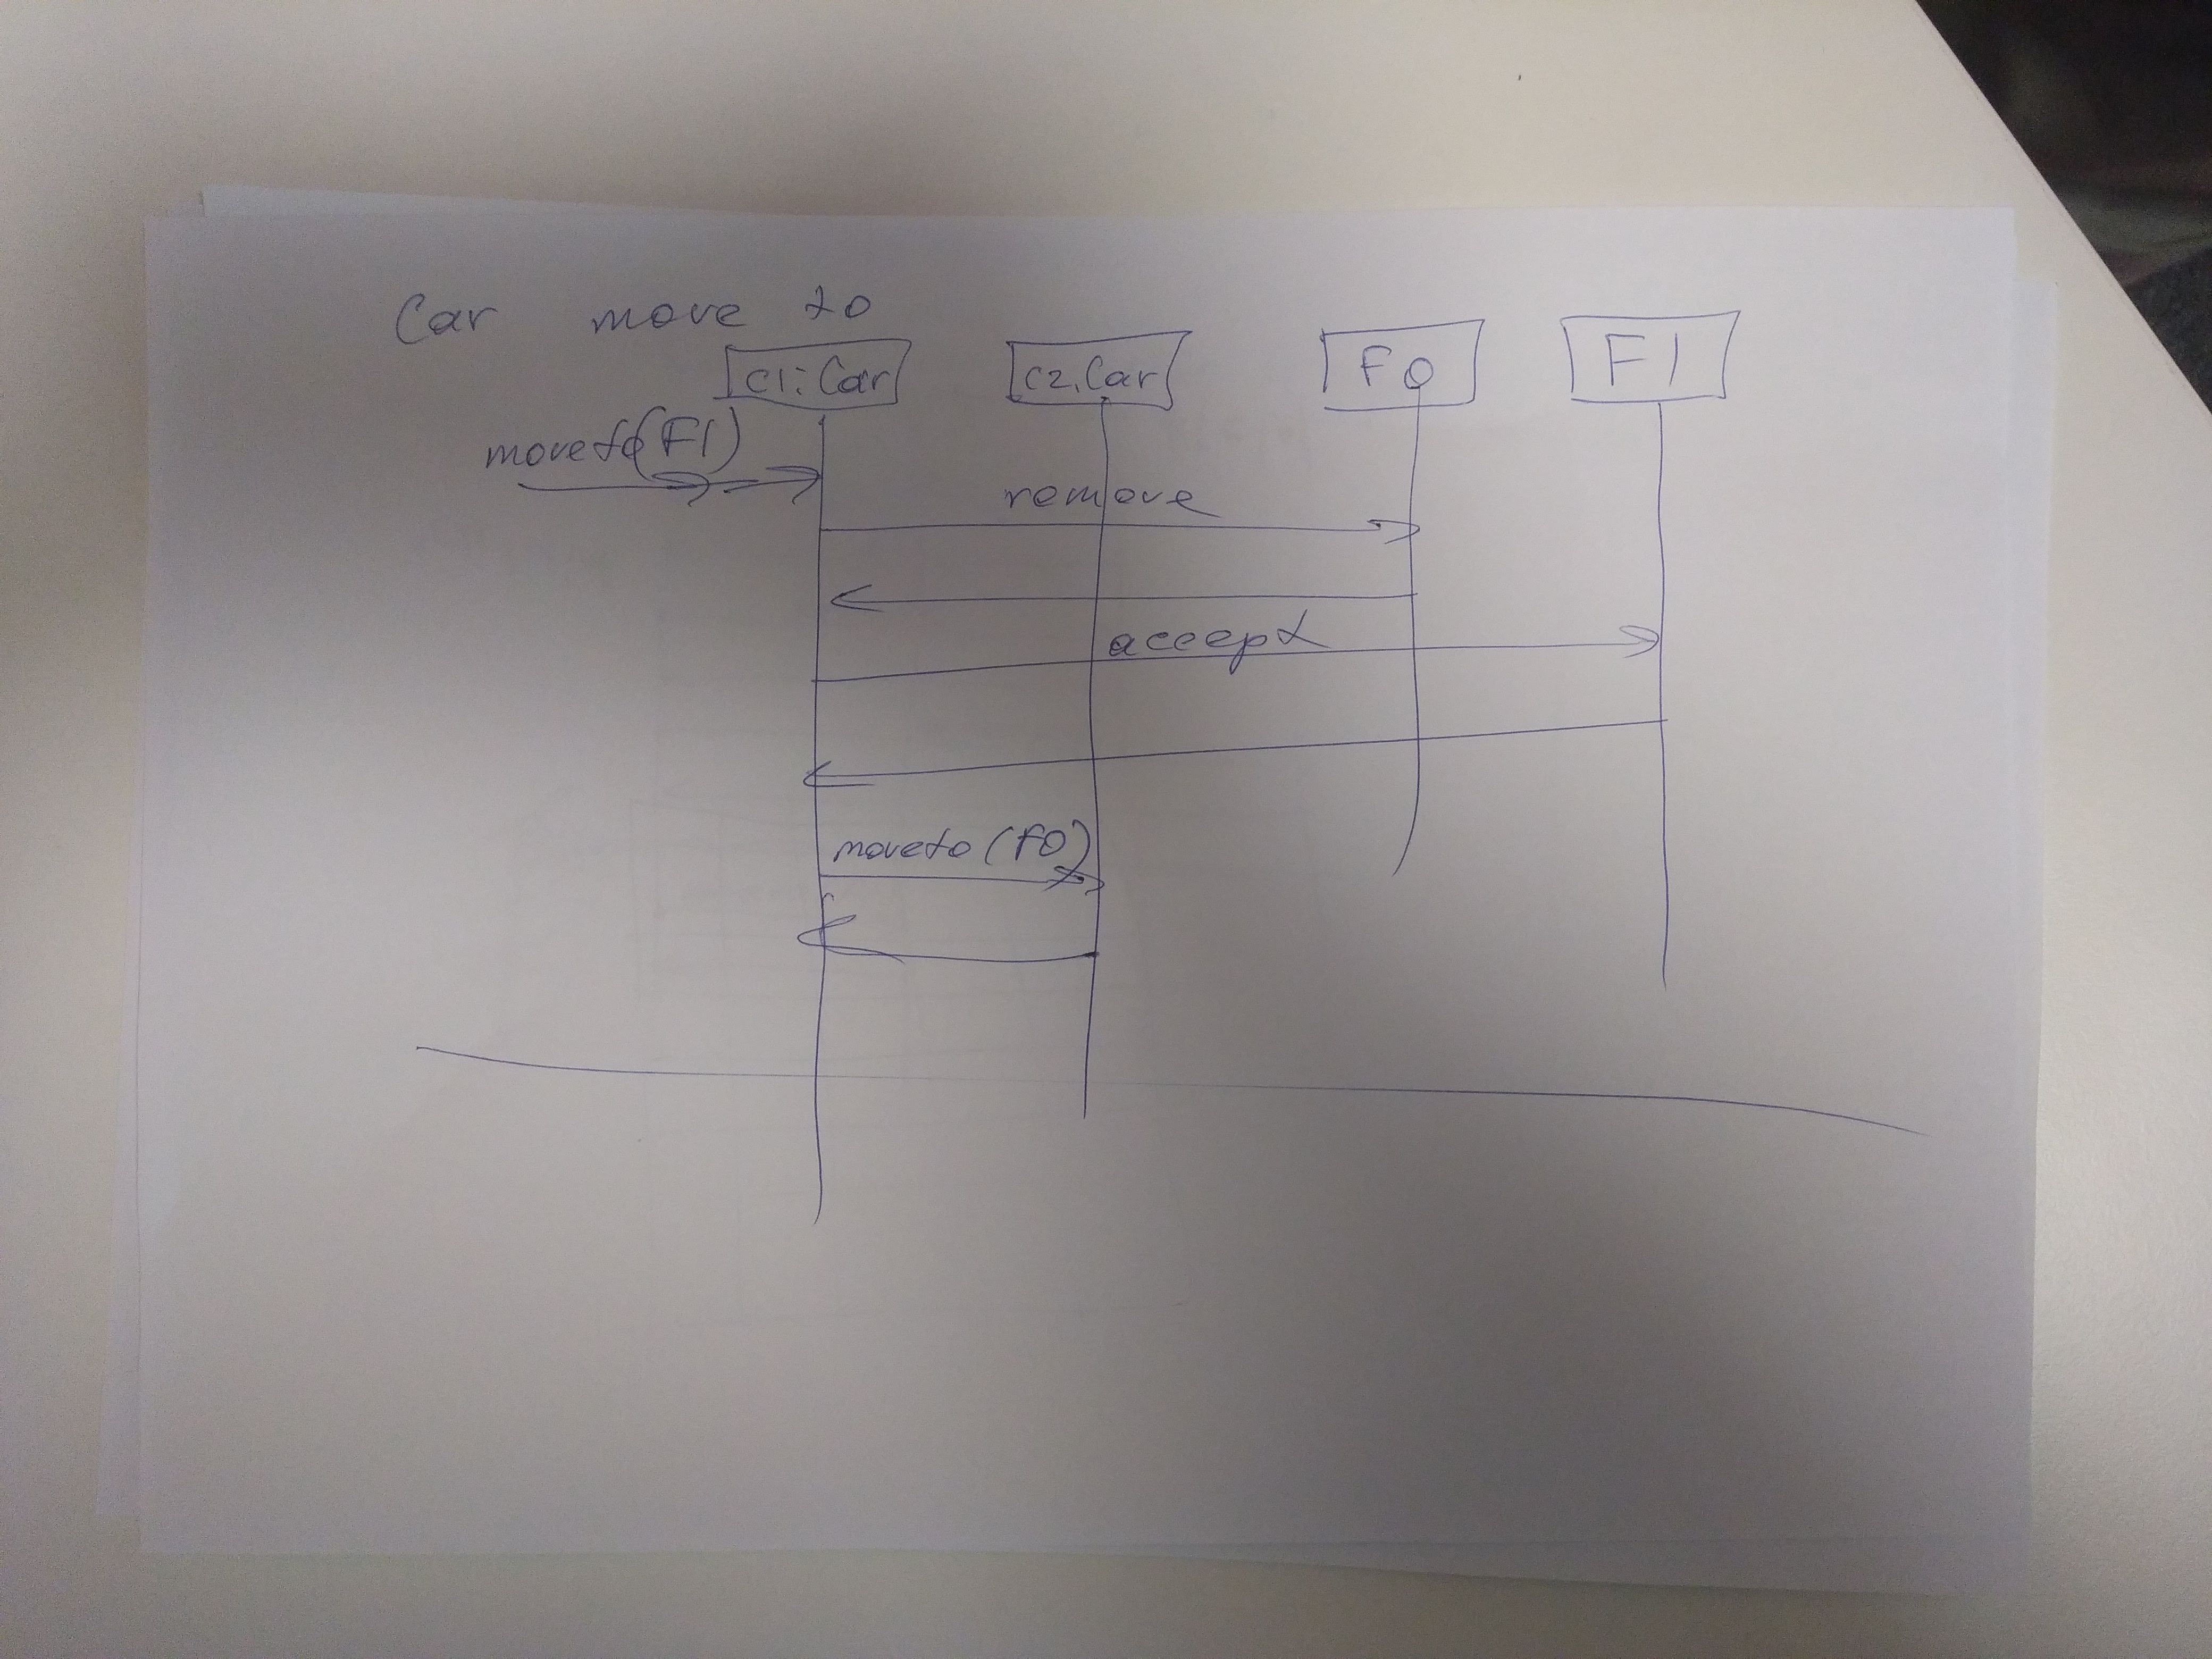 Car move to
c1:Car c2.Car F0 F1
moveto(F1)
remove
accept
moveto(F0)